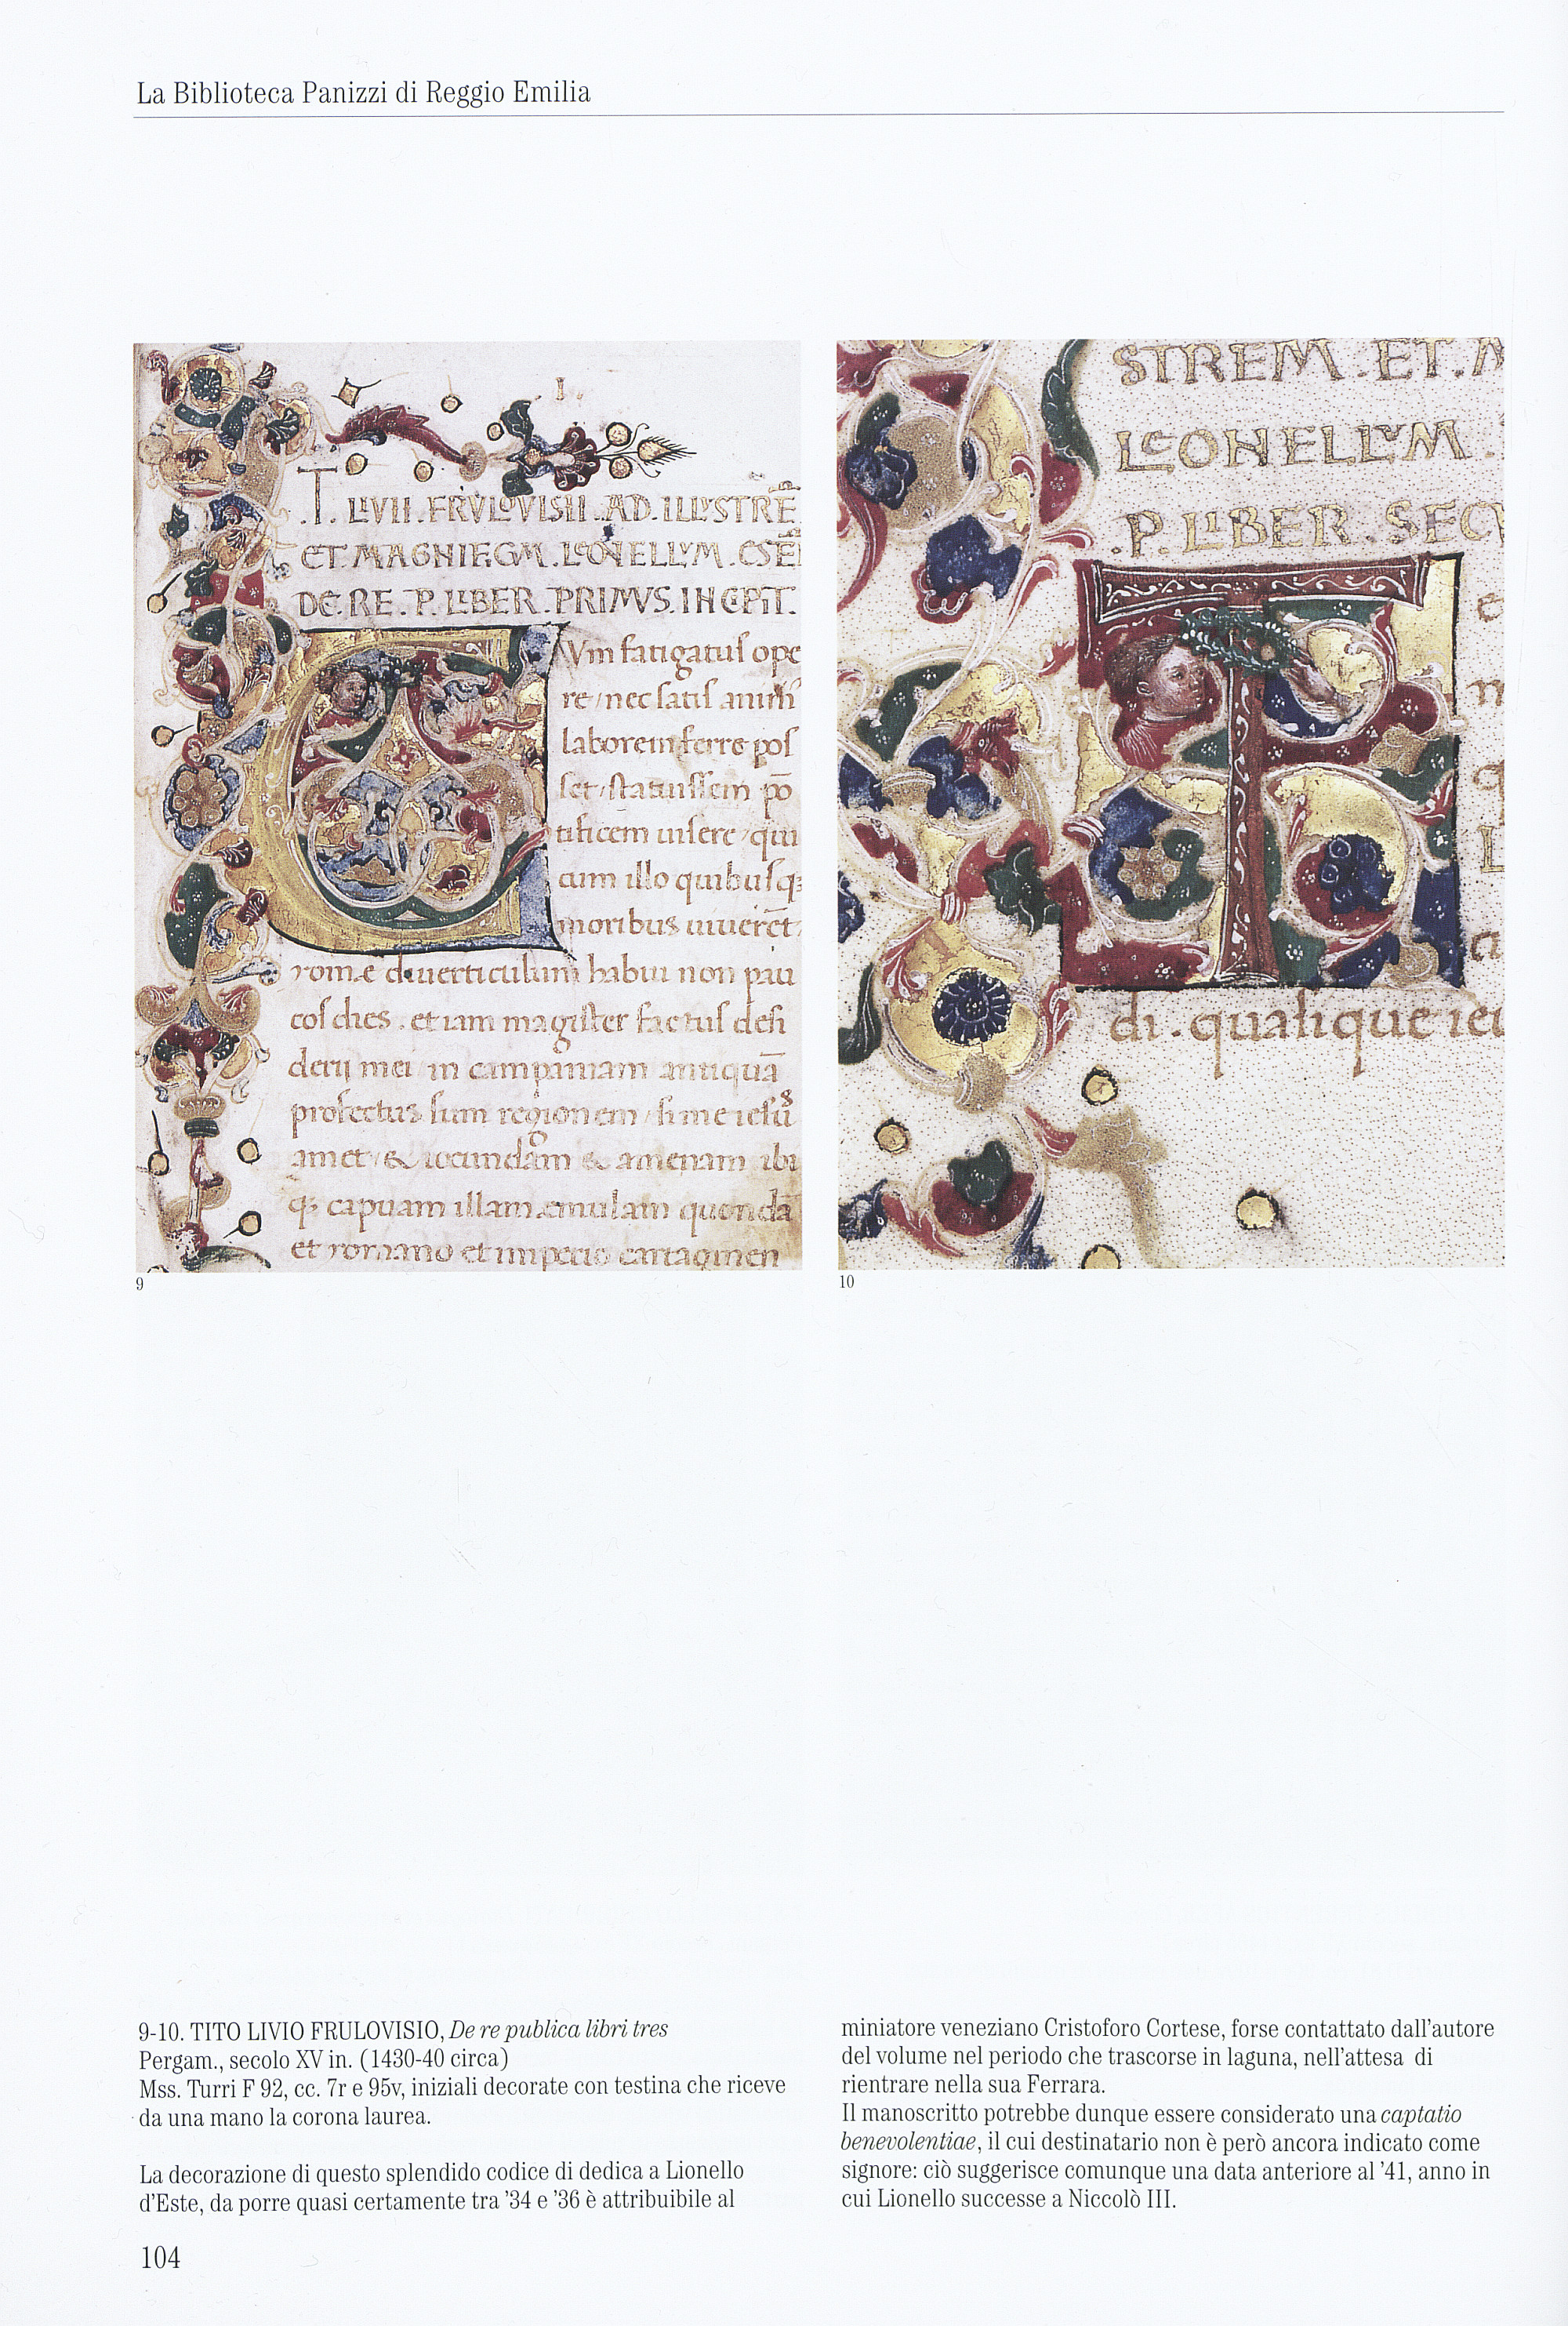 La Biblioteca Panizzi di Reggio Emilia
I.
.T. LIVII. FRVLOVISII. AD. ILLVSTRĒ
ET MAGNIFICVM. LEONELLVM. ESTĒ
DE. RE. P. LIBER. PRIMVS. INCIPIT.
CVm fatigatus ope
re / nec satis animi
laborem ferre pos
set / statuissem pō
tificem uisere / qui
cum illo quibusq;
moribus uiuerēt /
rome diuerticulum habui non pau
cos dies. et iam magister factus desi
derii mei / in campaniam antiquā
profectus sum regionem / si me
amet / & iocundam & amenam ibi
q; capuam illam emulam quondā
et romano et imperio cartaginen
9
STREM. ET. M
LEONELLVM.
.P. LIBER. SECV
T
di. qualique
10
9-10. TITO LIVIO FRULOVISIO, De re publica libri tres
Pergam., secolo XV in. (1430-40 circa)
Mss. Turri F 92, cc. 7r e 95v, iniziali decorate con testina che riceve
da una mano la corona laurea.
La decorazione di questo splendido codice di dedica a Lionello
d'Este, da porre quasi certamente tra '34 e '36 è attribuibile al
miniatore veneziano Cristoforo Cortese, forse contattato dall'autore
del volume nel periodo che trascorse in laguna, nell'attesa di
rientrare nella sua Ferrara.
Il manoscritto potrebbe dunque essere considerato una captatio
benevolentiae, il cui destinatario non è però ancora indicato come
signore: ciò suggerisce comunque una data anteriore al '41, anno in
cui Lionello successe a Niccolò III.
104